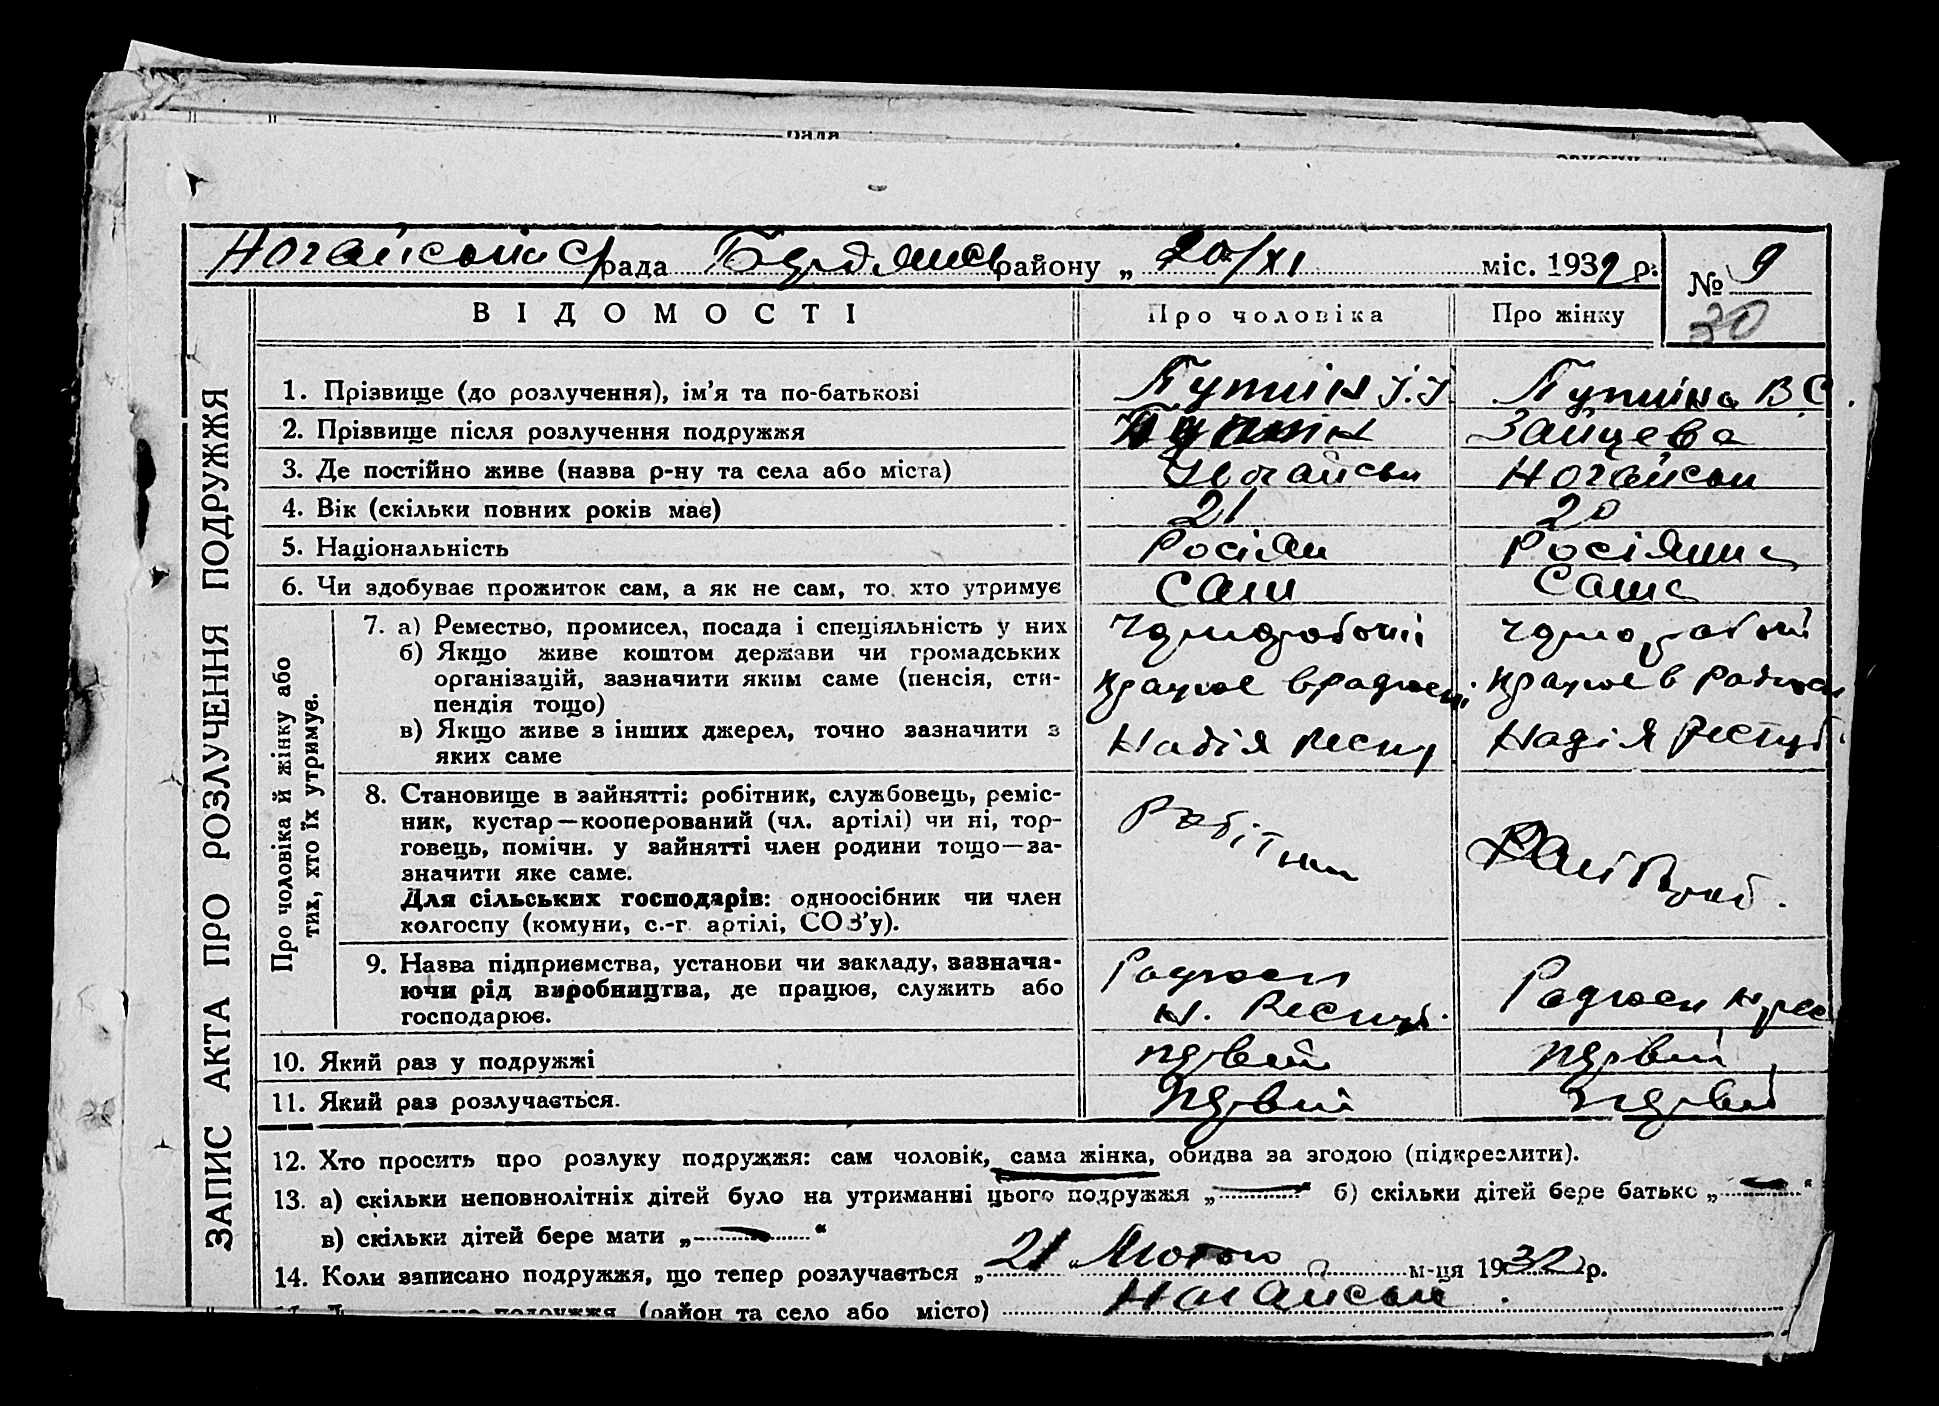 рада
Ногайська с/рада Бердянськ району „ 20/XI міс. 1932 р.
№ 9
30
ЗАПИС АКТА ПРО РОЗЛУЧЕННЯ ПОДРУЖЖЯ
ВІДОМОСТІ Про чоловіка Про жінку
1. Прізвище (до розлучення), ім'я та по-батькові Путнін І. І. Путніна В С.
2. Прізвище після розлучення подружжя Путнін Зайцева
3. Де постійно живе (назва р-ну та села або міста) Ногайськ Ногайськ
4. Вік (скільки повних років має) 21 20
5. Національність Росіян Росіянка
6. Чи здобуває прожиток сам, а як не сам, то, хто утримує Сам Сама
Про чоловіка й жінку або тих, хто їх утримує.
7. а) Ремество, промисел, посада і спеціяльність у них Чорноробочий чорноробочий
б) Якщо живе коштом держави чи громадських
організацій, зазначити яким саме (пенсія, сти- працює в радгоспі працює в радгосп
пендія тощо)
в) Якщо живе з інших джерел, точно зазначити з Надія Респу Надія Респуб.
яких саме
8. Становище в зайнятті: робітник, службовець, реміс-
ник, кустар—кооперований (чл. артілі) чи ні, тор- Робітник
говець, помічн. у зайнятті член родини тощо—за-
значити яке саме.
Для сільських господарів: одноосібник чи член
холгоспу (комуни, с.-г. артілі, СОЗ'у).
9. Назва підприємства, установи чи закладу, зазнача- Радгосп
ючи рід виробництва, де працює, служить або Н. Респуб. Радгосп Н рес
господарює.
10. Який раз у подружжі первий первий
11. Який раз розлучається. Первий Первий
12. Хто просить про розлуку подружжя: сам чоловік, сама жінка, обидва за згодою (підкреслити).
13. а) скільки неповнолітніх дітей було на утриманні цього подружжя „—“ б) скільки дітей бере батько „—“
в) скільки дітей бере мати „—“
14. Коли записано подружжя, що тепер розлучається „21“ Лютого м-ця 1932 р.
подружжя (район та село або місто) Ногайськ.